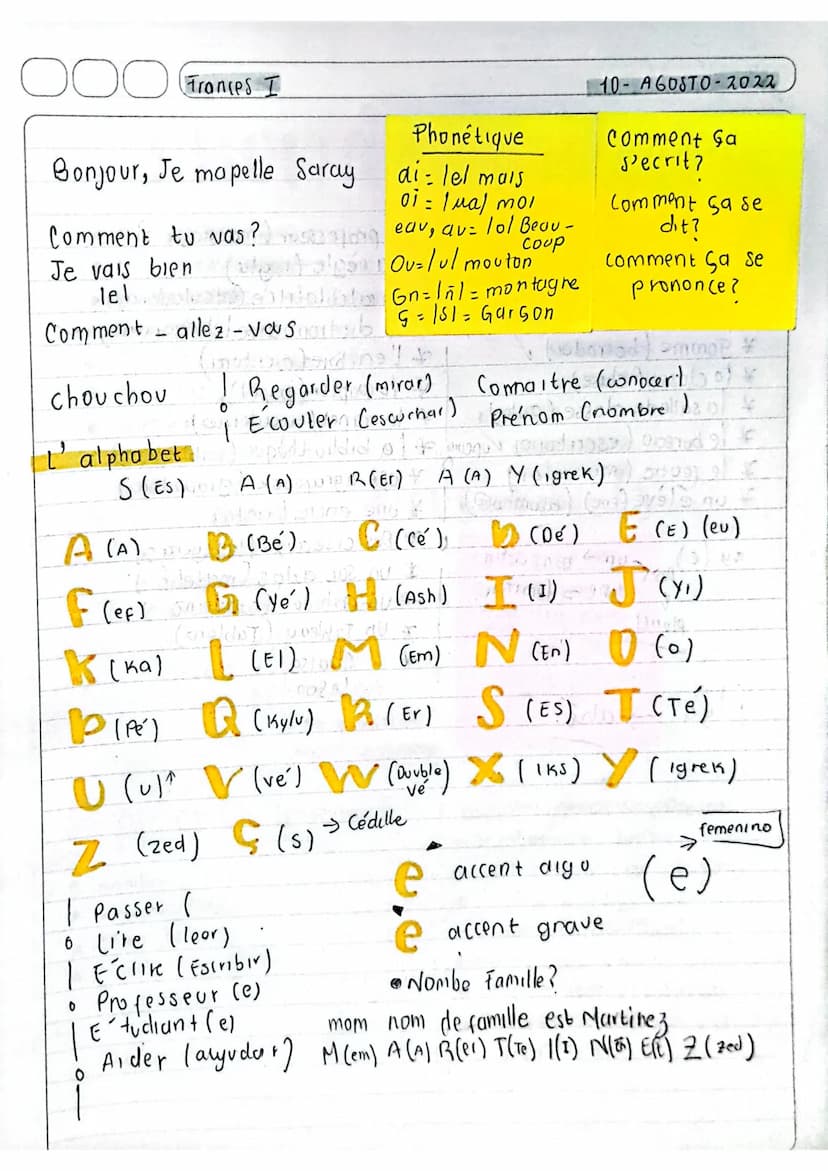 Frances I
10- AGOSTO-2022
Bonjour, Je mapelle Saray
Comment tu vas?
Je vais bien
lel
Comment - allez-vous
Phonétique
ai = lel mais
oi = lual moi
eau, au = lol Beau-
coup
Ou= lul mouton
Gn= lñl = montagne
Ç = lsl = Garson
Comment ça
s'ecrit?
Comment ça se
dit?
comment ça se
prononce?
chouchou
Regarder (mirar)
Écouter (escuchar)
Connaitre (conocer)
Prénom (nombre)
L' alphabet
S (Es) A (A) R (Er) A (A) Y (igrek)
A (A) B (Bé) C (Cé) D (Dé) E (E) (eu)
F (ef) G (Yé) H (Ash) I (I) J (Yi)
K (Ka) L (El) M (Em) N (En) O (o)
P (Pé) Q (Kylu) R (Er) S (ES) T (Té)
U (u)↑ V (vé) W (Double vé) X (iks) Y (igrek)
Z (zed) Ç (s) → Cédille
femenino
e accent aigu (e)
e accent grave
Passer (
Lire (leer)
Professeur (e)
É tudiant (e)
Aider (ayudar)
Nombe Famille?
mom nom de famille est Martinez
M (em) A (A) R (er) T (Te) I (I) N (En) E (E) Z (zed)